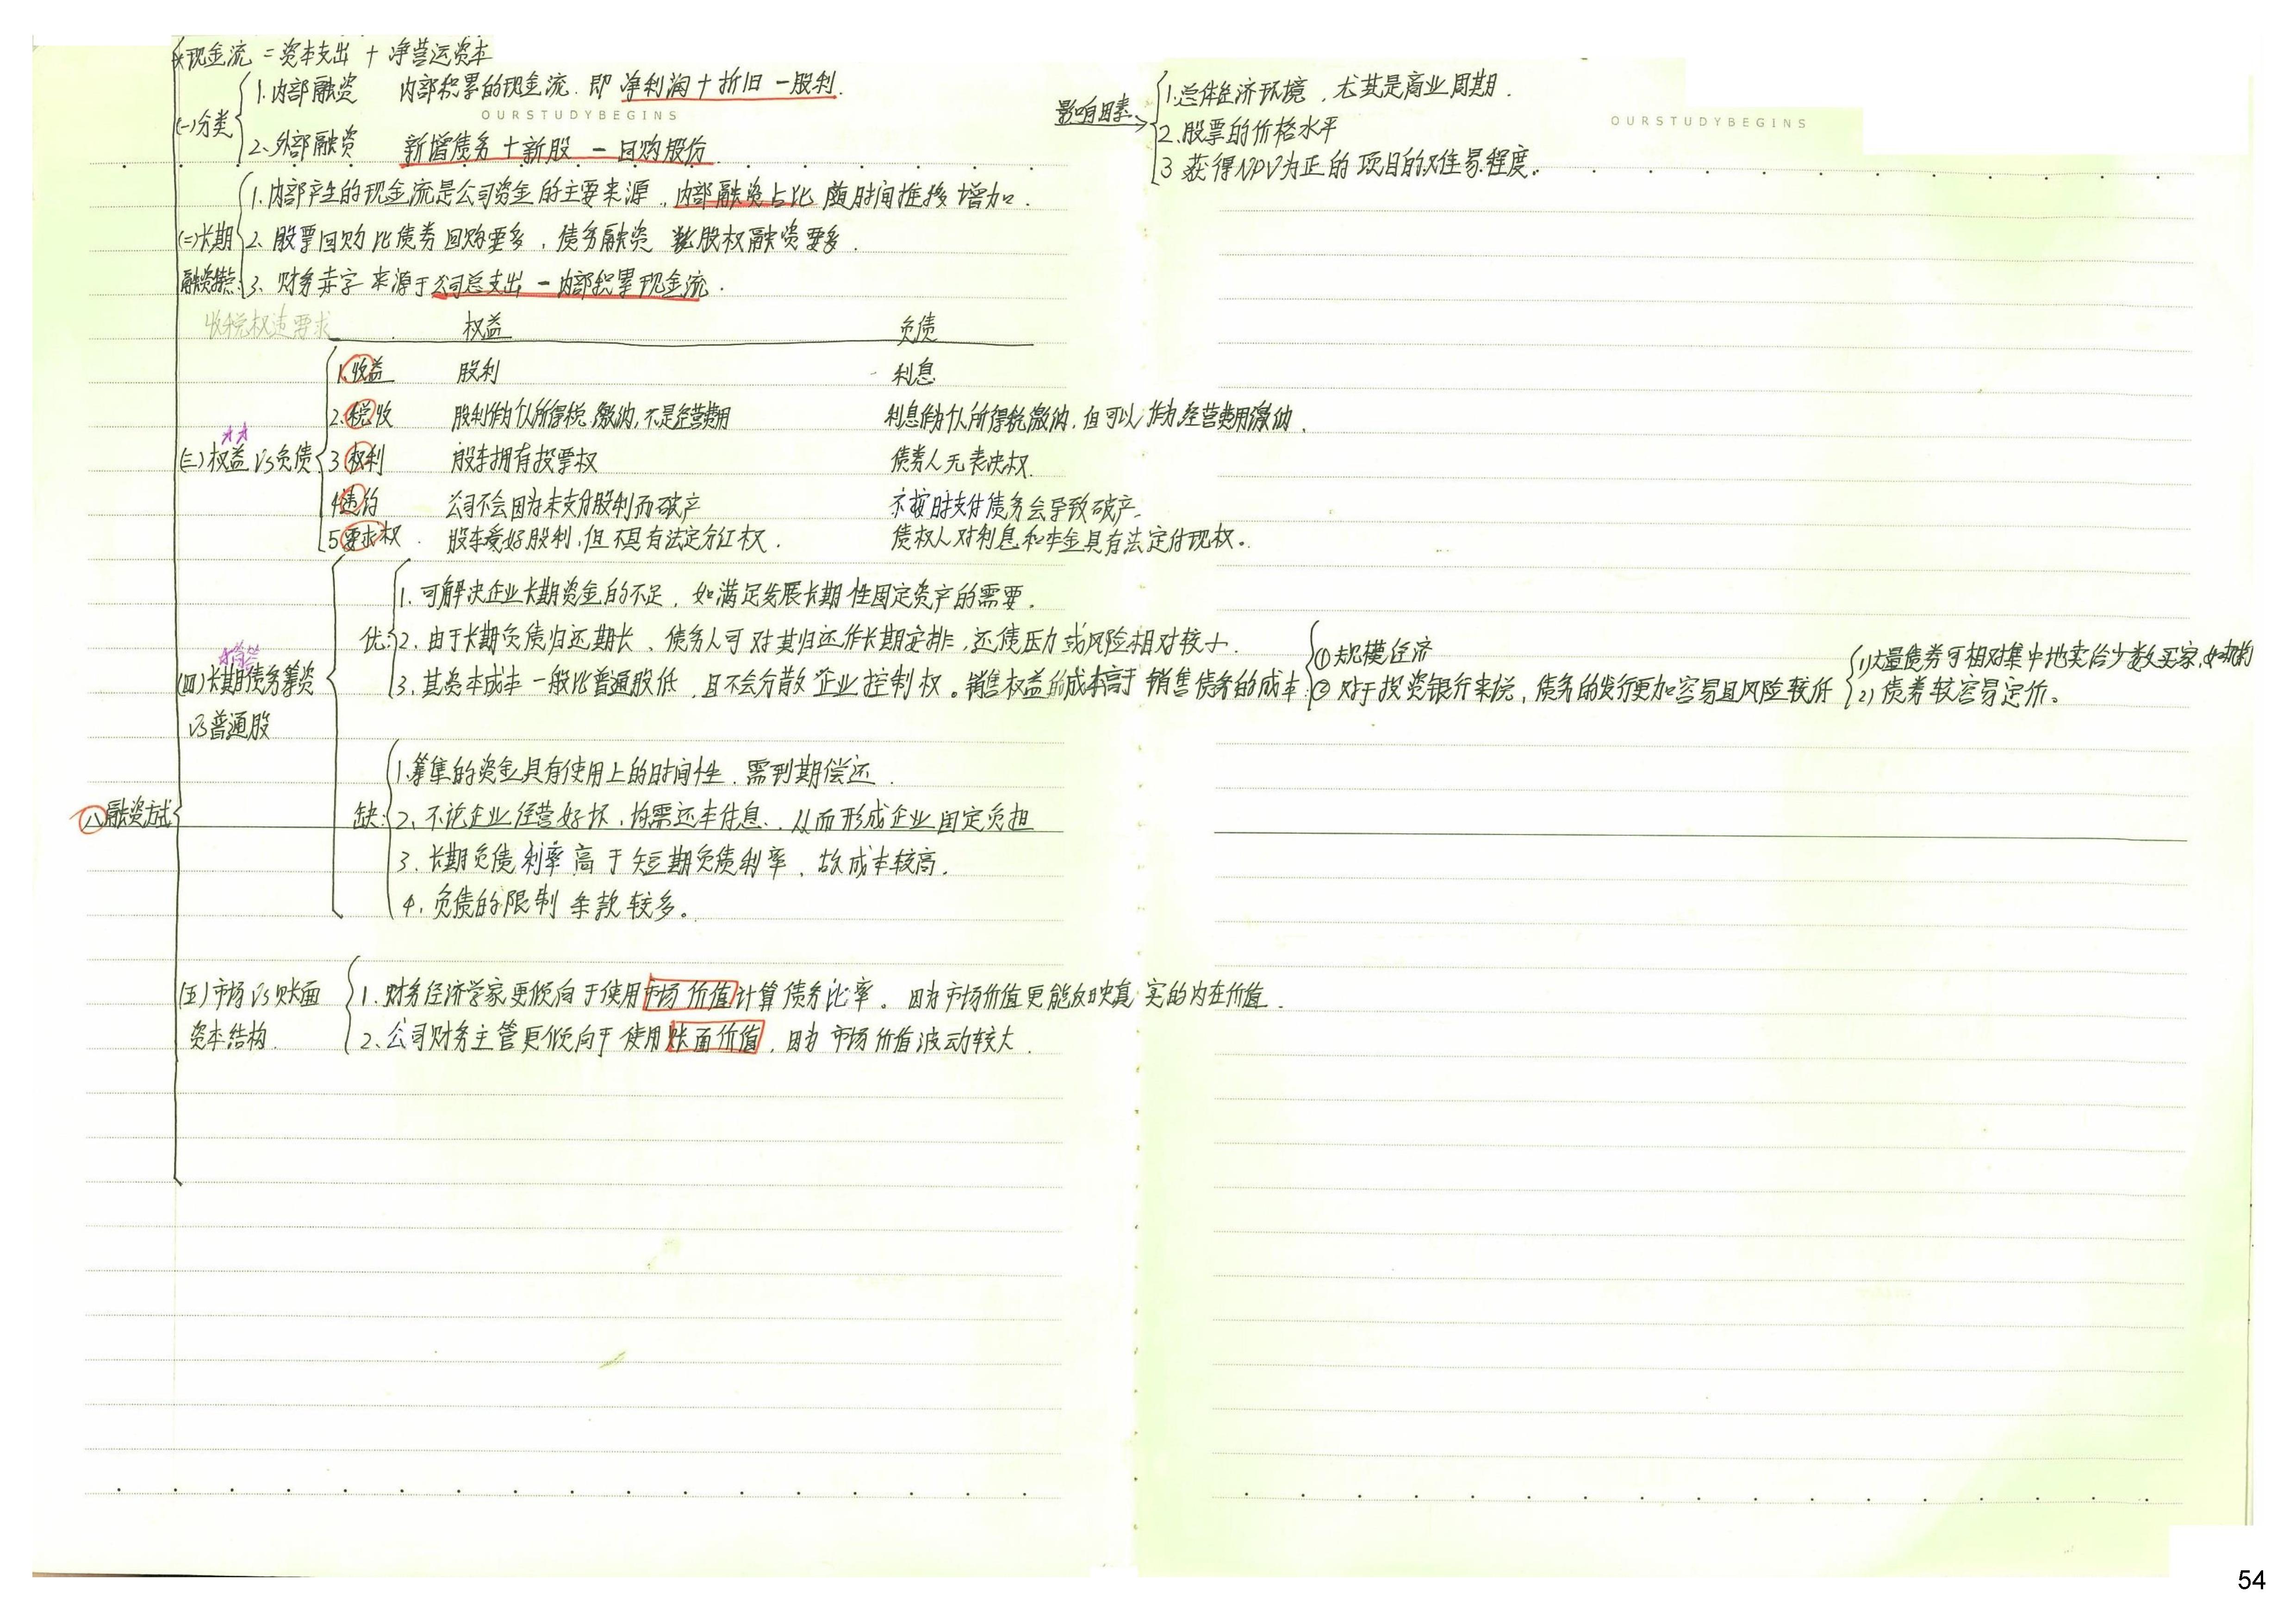 *现金流 = 资本支出 + 净营运资本
(一)分类
1.内部融资 内部积累的现金流.即 净利润+折旧-股利.
OURSTUDYBEGINS
2.外部融资 新增债务+新股-回购股份
影响因素
1.总体经济环境,尤其是商业周期.
OURSTUDYBEGINS
2.股票的价格水平
3 获得NPV为正的项目的难易程度.
(二)长期融资特点:
1.内部产生的现金流是公司资金的主要来源.内部融资占比随时间推移增加.
2.股票回购比债券回购要多,债务融资比股权融资要多.
3.财务赤字来源于公司总支出-内部积累现金流.
收税权违要求 权益 负债
☆☆
(三)权益VS负债
1.收益 股利 利息
2.税收 股利作为个人所得税缴纳,不是经营费用 利息作为个人所得税缴纳,但可以作为经营费用缴纳.
3权利 股东拥有投票权 债券人无表决权.
4违约 公司不会因为未支付股利而破产 不按时支付债务会导致破产.
5要求权. 股东爱好股利,但不具有法定分红权. 债权人对利息和本金具有法定付现权。
☆简答
(四)长期债务筹资
VS普通股
优:
1.可解决企业长期资金的不足,如满足发展长期性固定资产的需要.
2.由于长期负债归还期长、债务人可对其归还作长期安排,还债压力或风险相对较小.
3.其资本成本一般比普通股低,且不会分散企业控制权。销售权益的成本高于销售债务的成本:
①规模经济
②对于投资银行来说,债务的发行更加容易且风险较低
(1)大量债券可相对集中地卖给少数买家,如机构
(2)债券较容易定价。
缺:
1.筹集的资金具有使用上的时间性.需到期偿还.
2、不论企业经营好坏,均需还本付息、从而形成企业固定负担
3.长期负债利率高于短期负债利率,故成本较高.
4.负债的限制条款较多。
八融资方式
(五)市场VS账面
资本结构.
1.财务经济学家更倾向于使用市场价值计算债务比率。因为市场价值更能反映真实的内在价值.
2、公司财务主管更倾向于使用账面价值,因为市场价值波动较大.
54